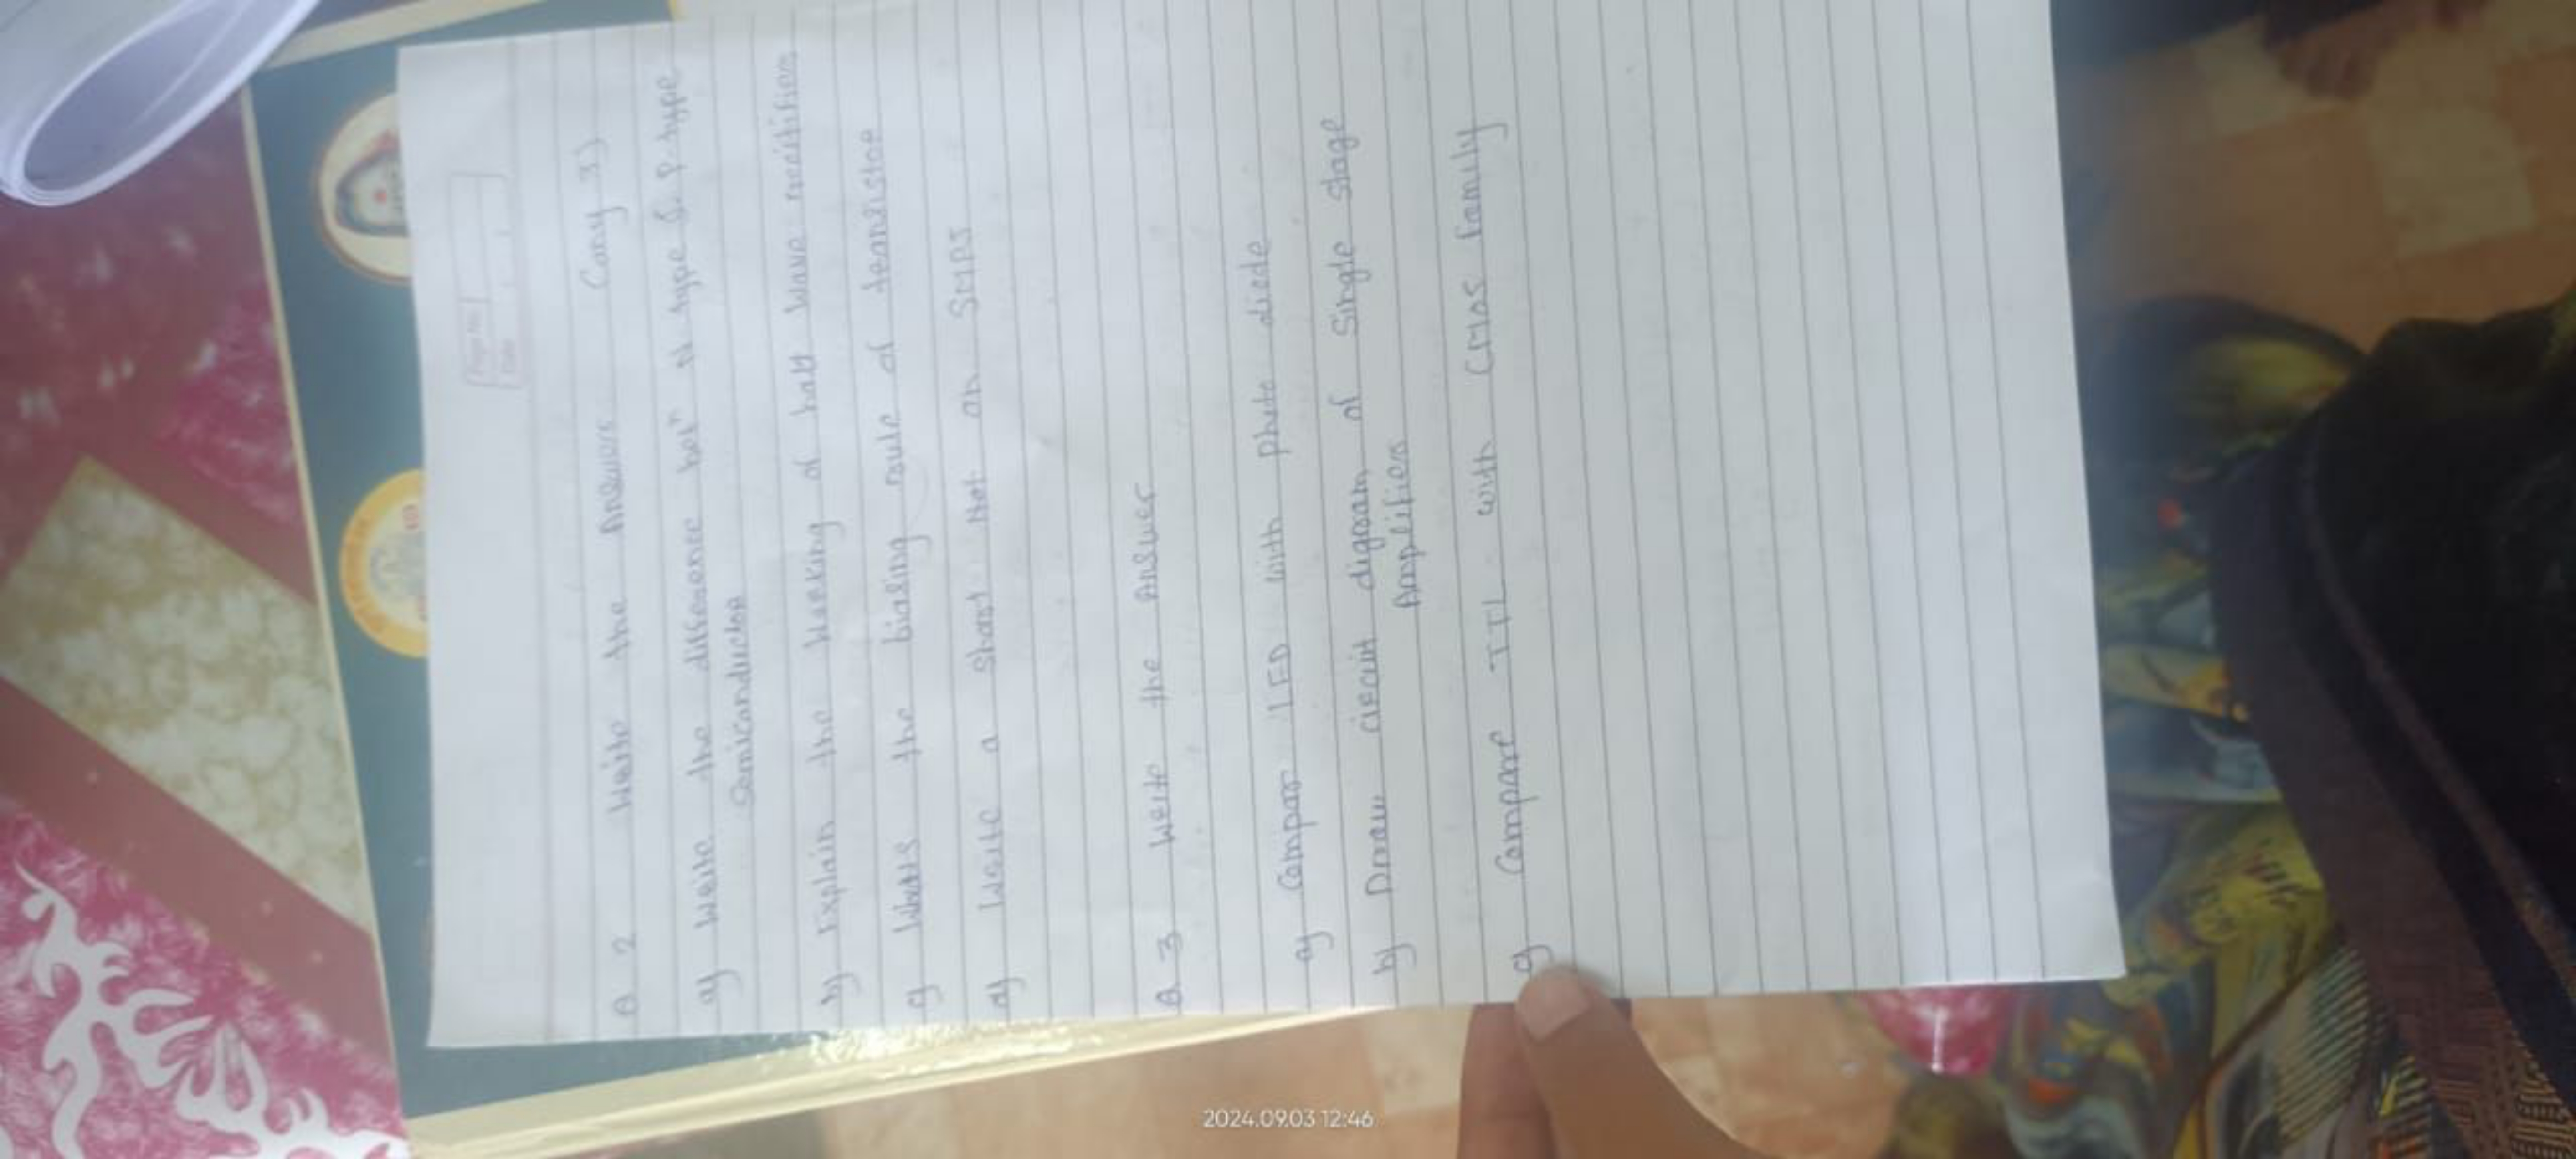 Page No.
Date
Q 2 Write the Answer (any 3)
a) Write the difference betn N type & P type
Semiconductor
b) Explain the working of half wave rectifier
c) Whats the biasing rule of transistor
d) Write a short Not on SMPS
Q. 3 Write the Answer
a) Compar LED with photo diode
b) Draw circuit digram of Single stage
Amplifier
c) Compare TTL with CMOS family
2024.09.03 12:46